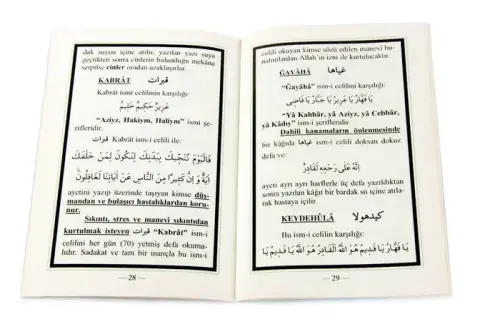 dak suyun içine atılır, yazılan yazı suya
geçtikten sonra cinlerin bulunduğu mekâna
serpilse cinler oradan uzaklaşırlar.
KABRÂT قبرات
Kabrât ismi celilinin karşılığı:
عَزِيزُ حَكِيمُ حَلِيمُ
"Aziyz, Hakiym, Haliym" ismi şe-
rifleridir.
قبرات Kabrât ism-i celili ile:
فَالْيَوْمَ نُنَجِّيكَ بِبَدَنِكَ لِتَكُونَ لِمَنْ خَلْفَكَ
اٰيَةً وَ إِنَّ كَثِيرًا مِنَ النَّاسِ عَنْ اٰيَاتِنَا لَغَافِلُونَ
ayetini yazıp üzerinde taşıyan kimse düş-
mandan ve bulaşıcı hastalıklardan koru-
nur.
Sıkıntı, stres ve manevî sıkıntıdan
kurtulmak isteyen قبرات "Kabrât" ism-i
celilini her gün (70) yetmiş defa okuma-
lıdır. Sadakat ve tam bir inançla bu ism-i
— 28 —
celili okuyan kimse sözü edilen manevî bu-
nalımlardan Allah'ın izni ile kurtulacaktır.
ĞAYÂHÂ غياها
"Ğayâhâ" ism-i celilini karşılığı:
يَا قَهَّارُ يَا عَزِيزُ يَا جَبَّارُ يَا قَاضِى
"Yâ Kahhâr, yâ Aziyz, yâ Cebbâr,
yâ Kâdıy" ism-i şerifleridir.
Dahilî kanamaların önlenmesinde
bir kâğıda غياها ism-i celili doksan dokuz
defa ve:
إِنَّهُ عَلَى رَجْعِهِ لَقَادِرٌ
ayeti ayrı ayrı harflerle üç defa yazıldıktan
sonra yazılan kâğıt bir bardak su içine atıla-
rak hastaya içilir.
KEYDEHÛLÂ كيدهولا
Bu ism-i celilin karşılığı:
يَا قَهَّارُ يَا قَدِيمُ هُوَ اللّٰهُ الْقَادِرُ هُوَ اللّٰهُ قَدِيمُ يَا
— 29 —